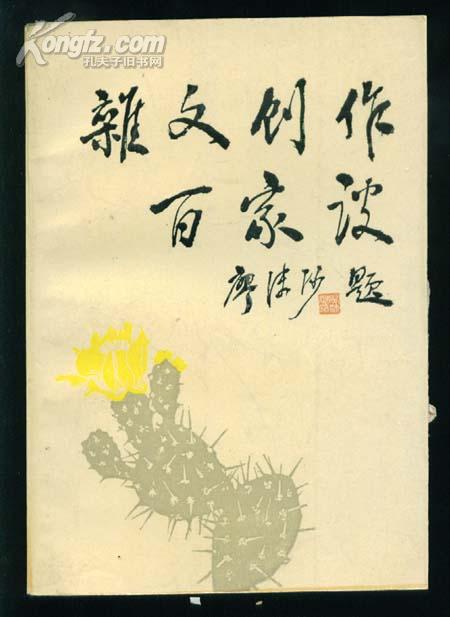 Kongfz.com
孔夫子旧书网
雜文创作
百家谈
廖沫沙题